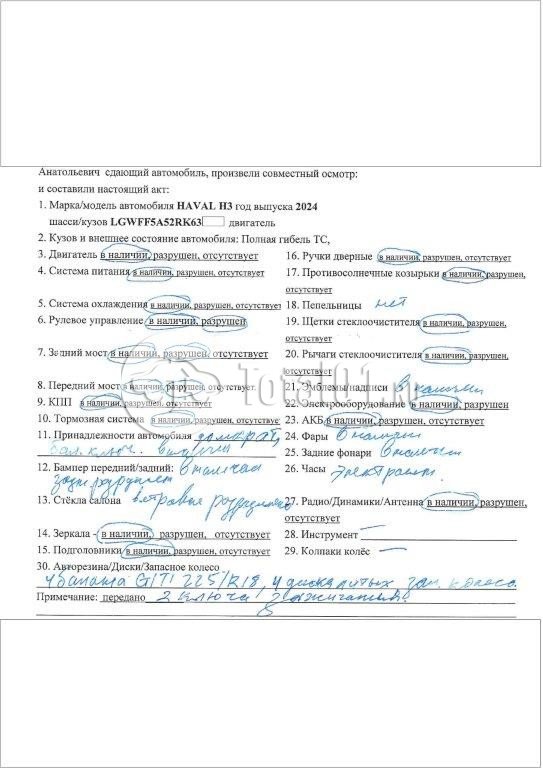 Анатольевич сдающий автомобиль, произвели совместный осмотр:
и составили настоящий акт:
1. Марка/модель автомобиля HAVAL H3 год выпуска 2024
шасси/кузов LGWFF5A52RK63 двигатель
2. Кузов и внешнее состояние автомобиля: Полная гибель ТС,
3. Двигатель в наличии, разрушен, отсутствует
4. Система питания в наличии, разрушен, отсутствует
5. Система охлаждения в наличии, разрушен, отсутствует
6. Рулевое управление в наличии, разрушен
7. Задний мост в наличии, разрушен, отсутствует
8. Передний мост в наличии, разрушен, отсутствует
9. КПП в наличии, разрушен, отсутствует
10. Тормозная система в наличии, разрушен, отсутствует
11. Принадлежности автомобиля домкрат,
бал. ключ. в наличии
12. Бампер передний/задний: в наличии
задн разрушен
13. Стёкла салона ветровые разрушено
14. Зеркала - в наличии, разрушен, отсутствует
15. Подголовники в наличии, разрушен, отсутствует
16. Ручки дверные в наличии, разрушен, отсутствует
17. Противосолнечные козырьки в наличии, разрушен,
отсутствует
18. Пепельницы нет
19. Щетки стеклоочистителя в наличии, разрушен,
отсутствует
20. Рычаги стеклоочистителя в наличии, разрушен,
отсутствует
21. Эмблемы/надписи в наличии
22. Электрооборудование в наличии, разрушен
23. АКБ в наличии, разрушен, отсутствует
24. Фары в наличии
25. Задние фонари в наличии
26. Часы электрон.
27. Радио/Динамики/Антенна в наличии, разрушен,
отсутствует
28. Инструмент —
29. Колпаки колёс —
30. Авторезина/Диски/Запасное колесо
4 балона GITI 225/R18, 4 диска литых зап. колесо.
Примечание: передано 2 ключа зажигания.
Total01.ru